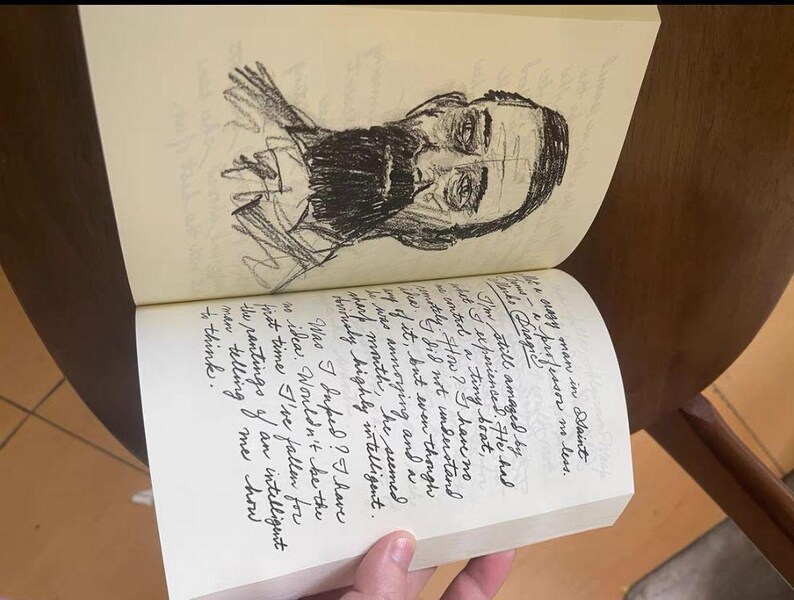 a crazy man in Saint
Denis - a professor no less.
Marko Dragic
I'm still amazed by
what I experienced. He had
me control a tiny boat,
remotely. How? I have no
idea. I did not understand
any of it, but even though
he was annoying and a
sharp mouth, he seemed
obviously highly intelligent.
Was I duped? I have
no idea. Wouldn't be the
first time I've fallen for
the rantings of an intelligent
man telling me how
to think.